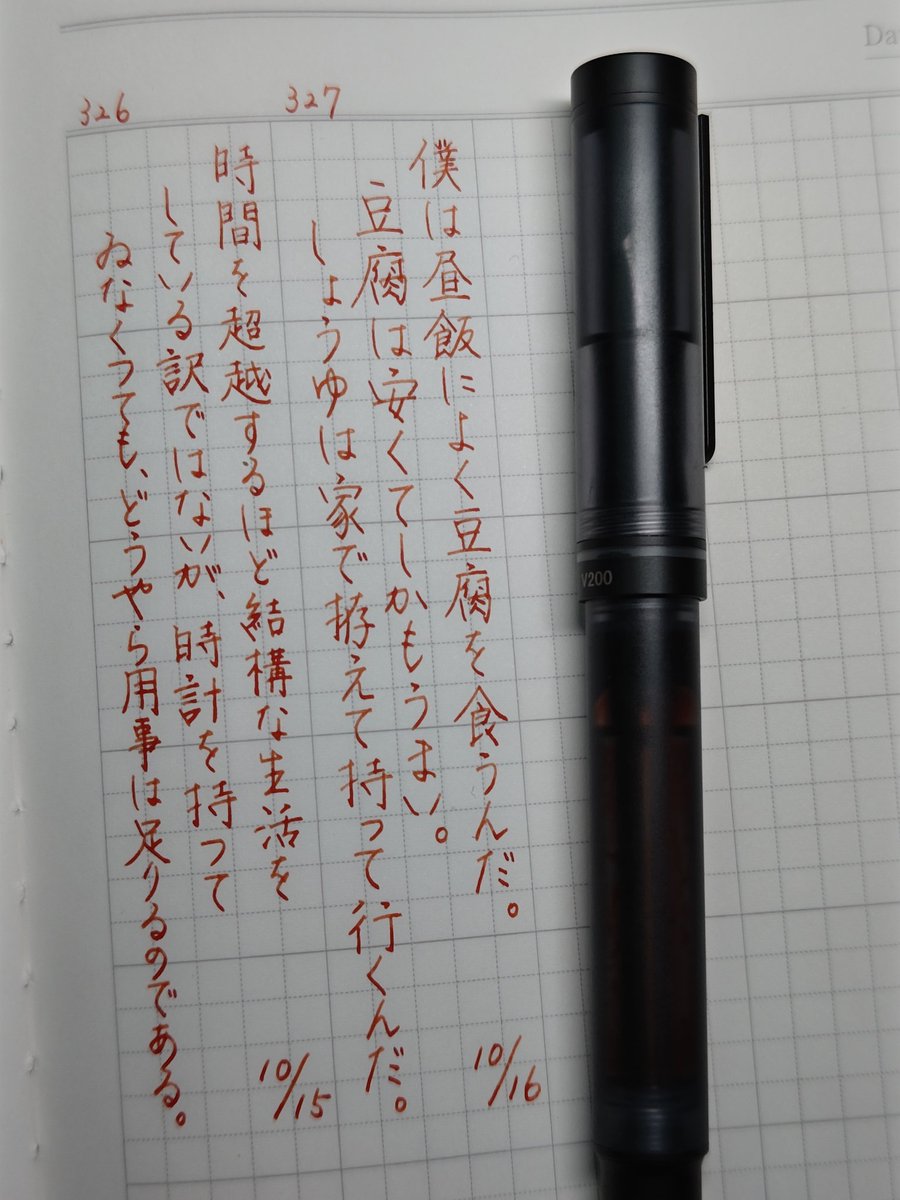 Da
327
僕は昼飯によく豆腐を食うんだ。
豆腐は安くてしかもうまい。
しょうゆは家で拵えて持って行くんだ。
10/16
326
時間を超越するほど結構な生活を
している訳ではないが、時計を持って
ゐなくっても、どうやら用事は足りるのである。
10/15
V200